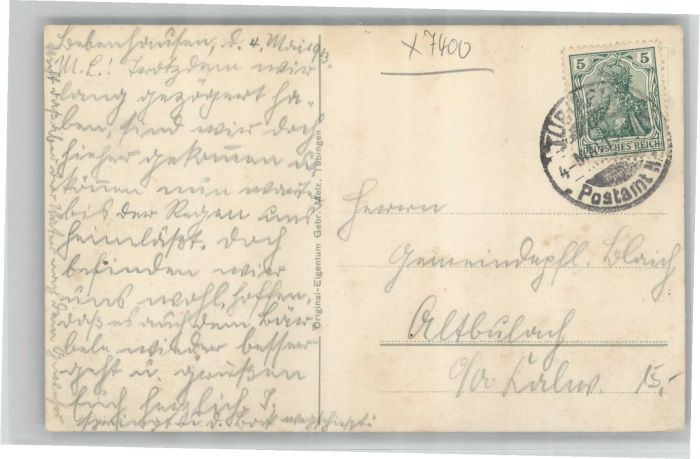 Bebenhausen, d. 4. Mai 1913.
M. L.! Trotzdem wir
lang gezögert ha-
ben, sind wir doch
hierher gekommen u.
können nun warten
bis der Regen uns
heimläßt. Doch
befinden wir
uns wohl, hoffen,
daß es auch dem Bär
bele wieder besser
geht u. grüßen
Euch herzlich
Original-Eigentum Gebr. Metz, Tübingen
X 7400
5 5
DEUTSCHES REICH
TÜBINGEN
4. MAI
Postamt
Herrn
Gemeindepfl. Blaich
Altbulach
O/A Calw.
15,-